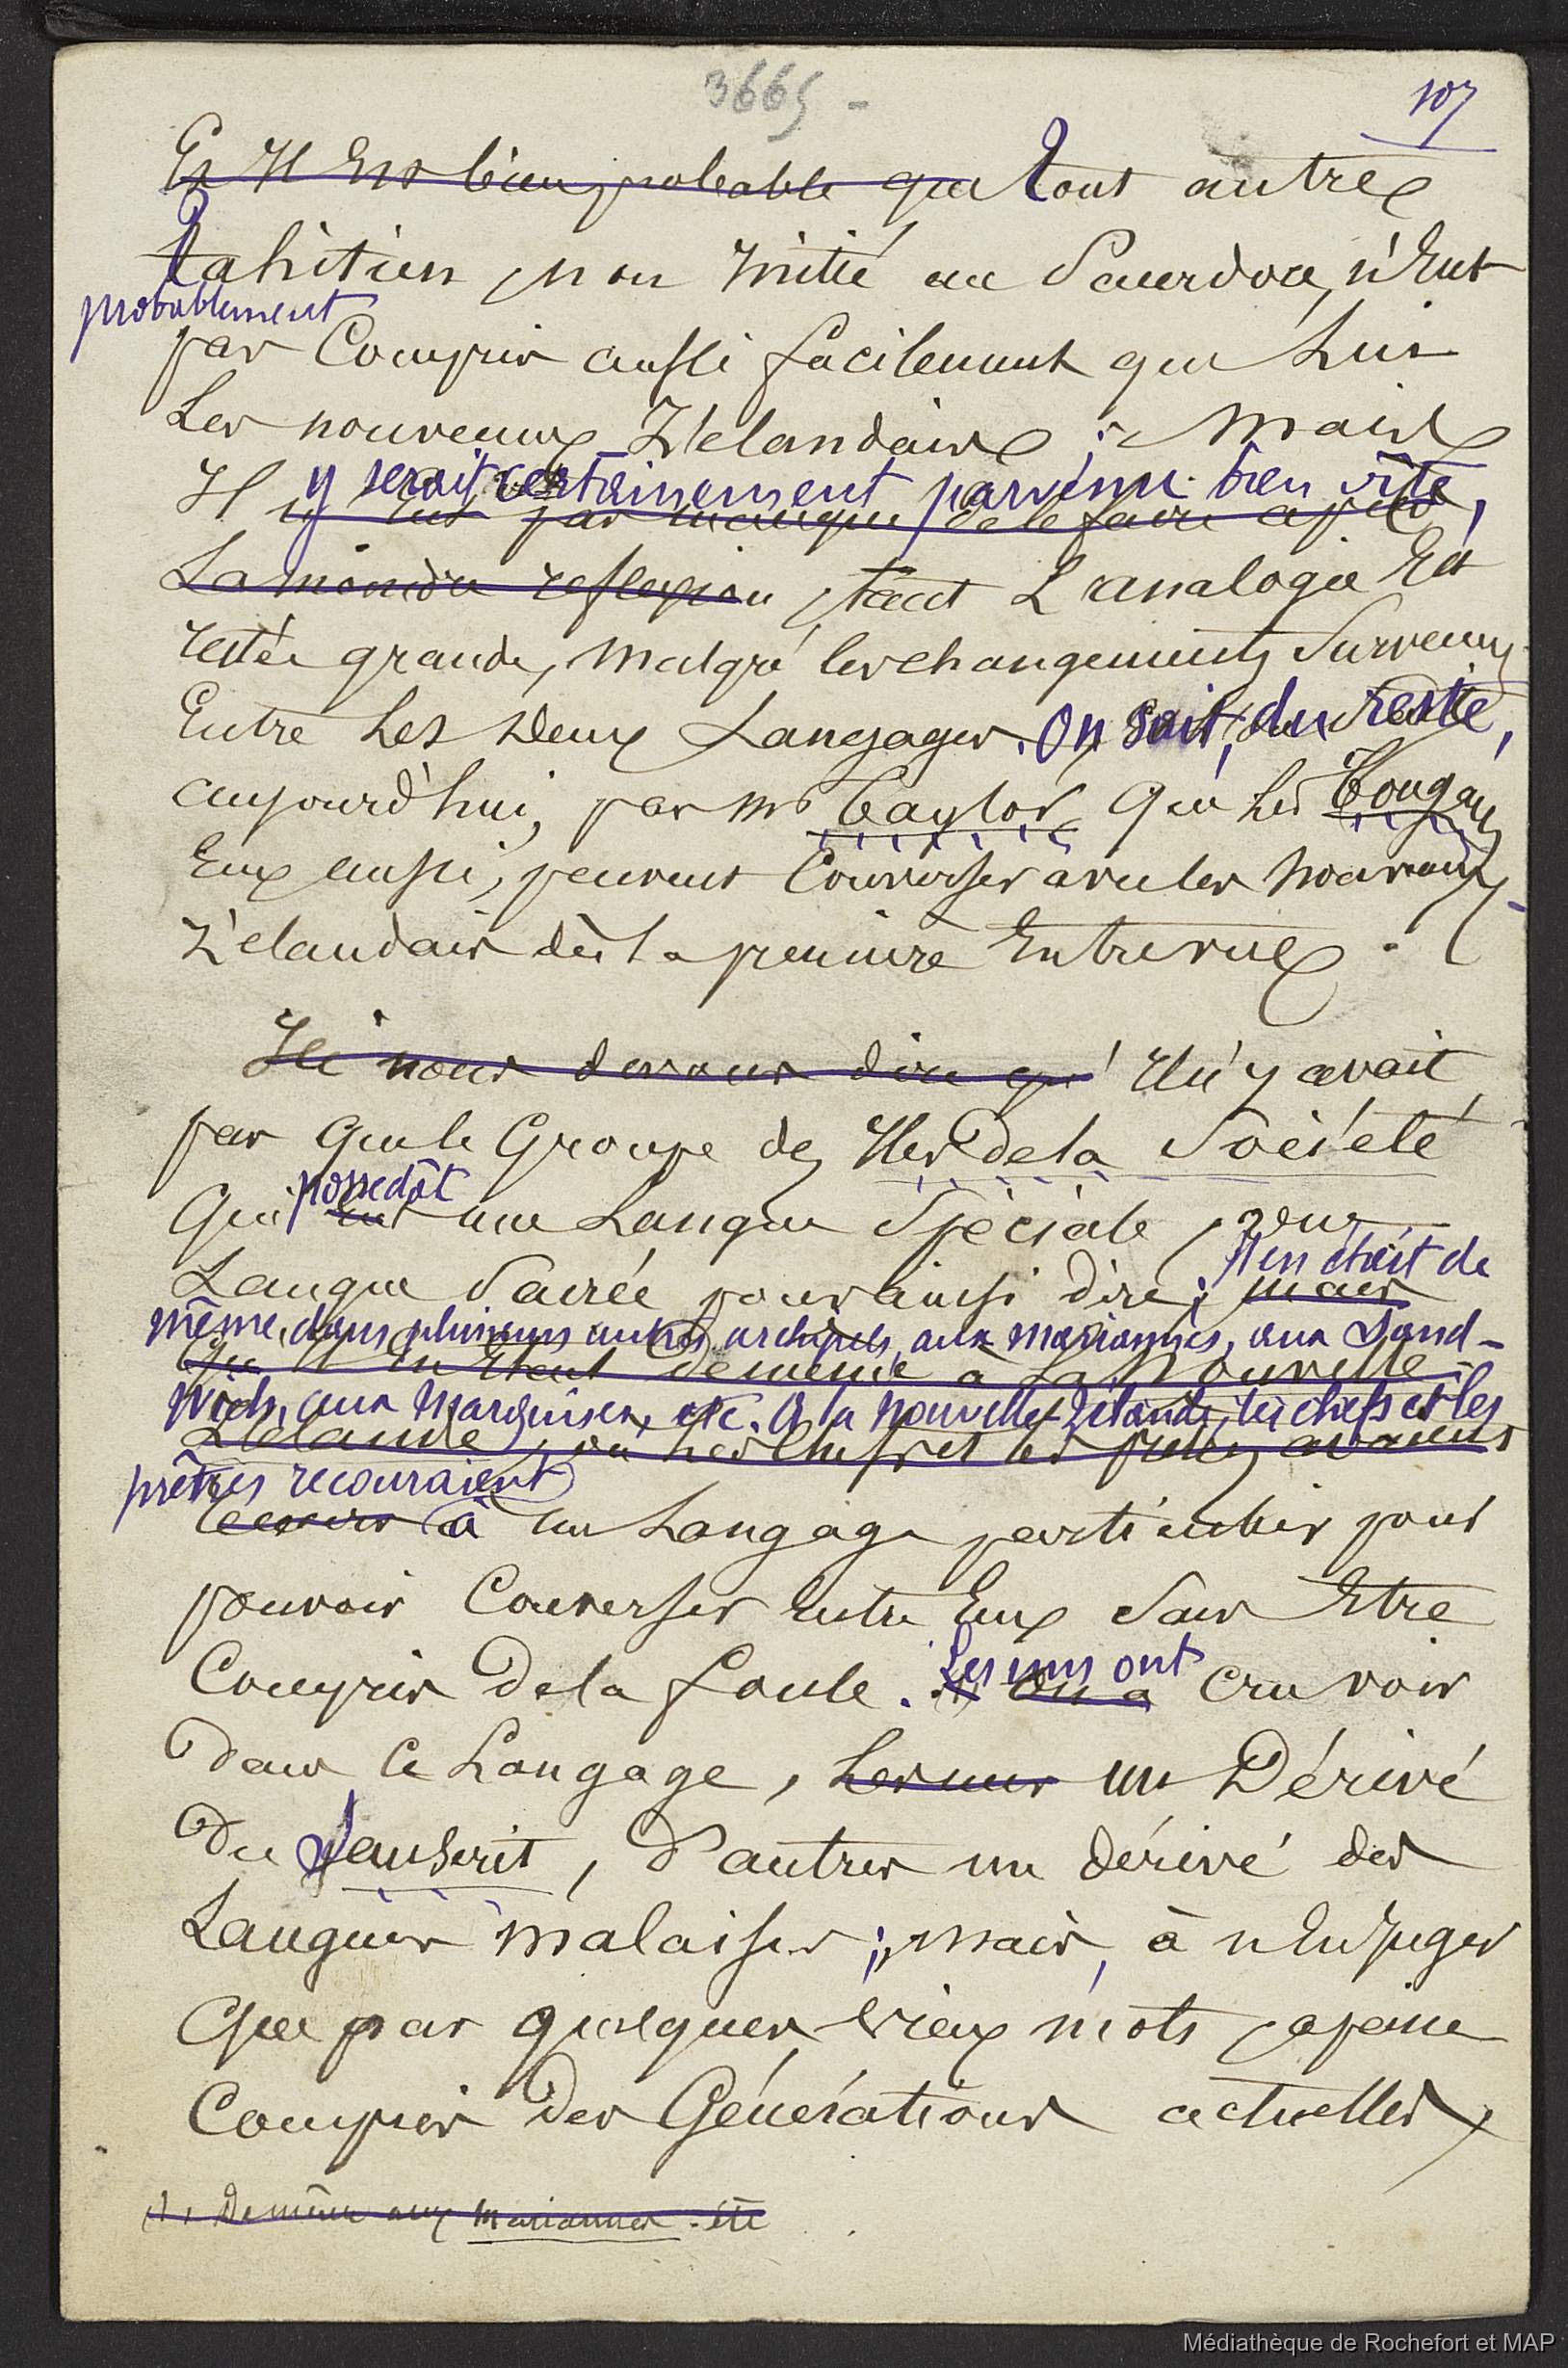 3665 -
107
Et Il Est bien probable que tout autre
tahitien, non initié au Sacerdoce, n'Eut
probablement
pas Compris aussi facilement que Lui
Les nouveaux Zélandais ; mais
y serait certainement parvenu bien vite,
Il n'y Eut pas manqué de le faire après
La moindre reflexion, tant L'analogie Est
restée grande, malgré les changements Survenus
Entre Les Deux Langages. On sait, du reste,
aujourd'hui, par Mr Taylor, que Les Tongans
Eux aussi, peuvent Converser avec les nouveaux
Zélandais dès la première Entrevue.
Ici nous devons dire qu' Il n'y avait
pas que le Groupe des Iles de la Société
possedât
Qui Eut une Langue Spéciale, une
Langue Sacrée pour ainsi dire; mais
il en était de
même, dans plusieurs autres archipels, aux mariannes, aux Sand-
qu'Il En Etait de même à La Nouvelle-
wich, aux Marquises, etc. A la Nouvelle-Zélande, les chefs et les
Zélande, où Les Chefs et les prêtres avaient
prêtres recouraient
recours à un Langage particulier pour
pouvoir Converser Entre Eux Sans Etre
Compris de la foule.
Les uns ont
On a cru voir
Dans Ce Langage, Les uns un Dérivé
Du Sanscrit, D'autres un dérivé des
Langues malaises; mais, à n'En Juger
Que par quelques vieux mots, à peine
Compris des Générations actuelles,
De même aux Mariannes. etc
Médiathèque de Rochefort et MAP